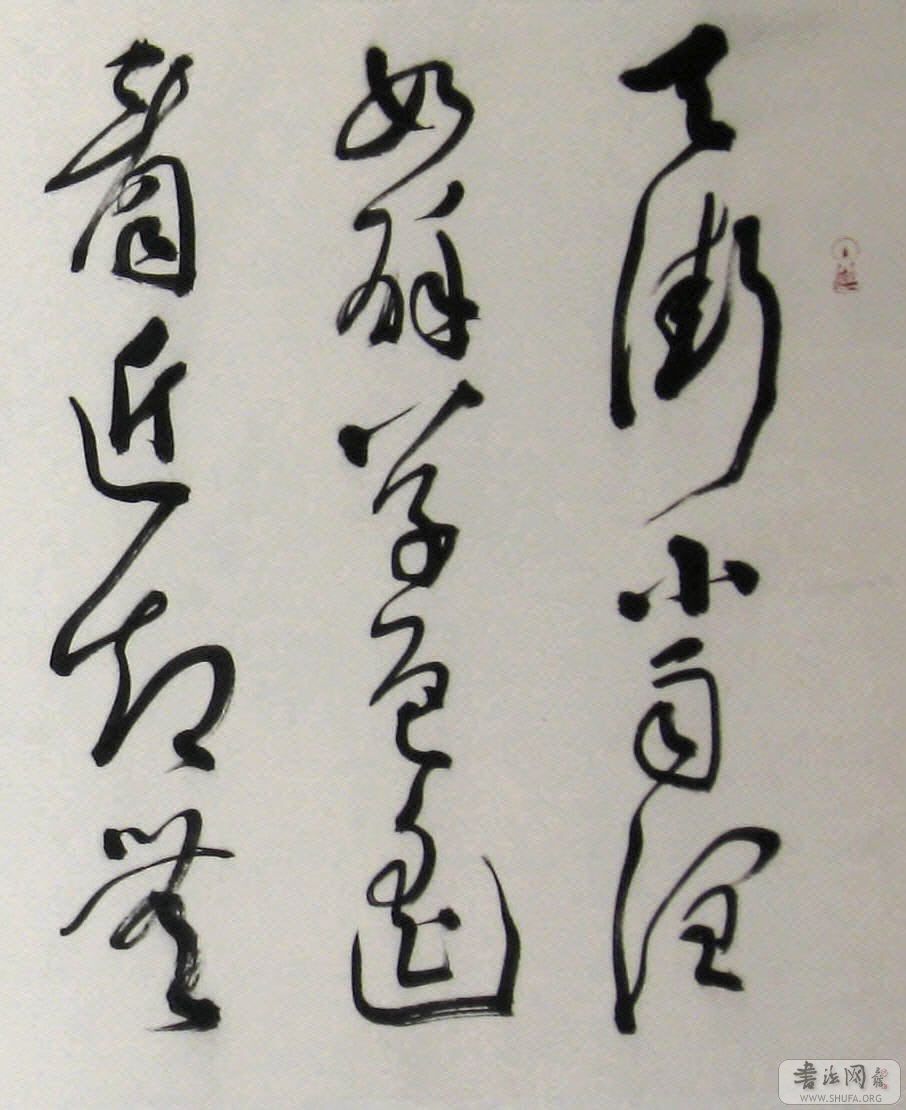 天街小雨润
如酥草色遥
看近却无
書法网
WWW.SHUFA.ORG